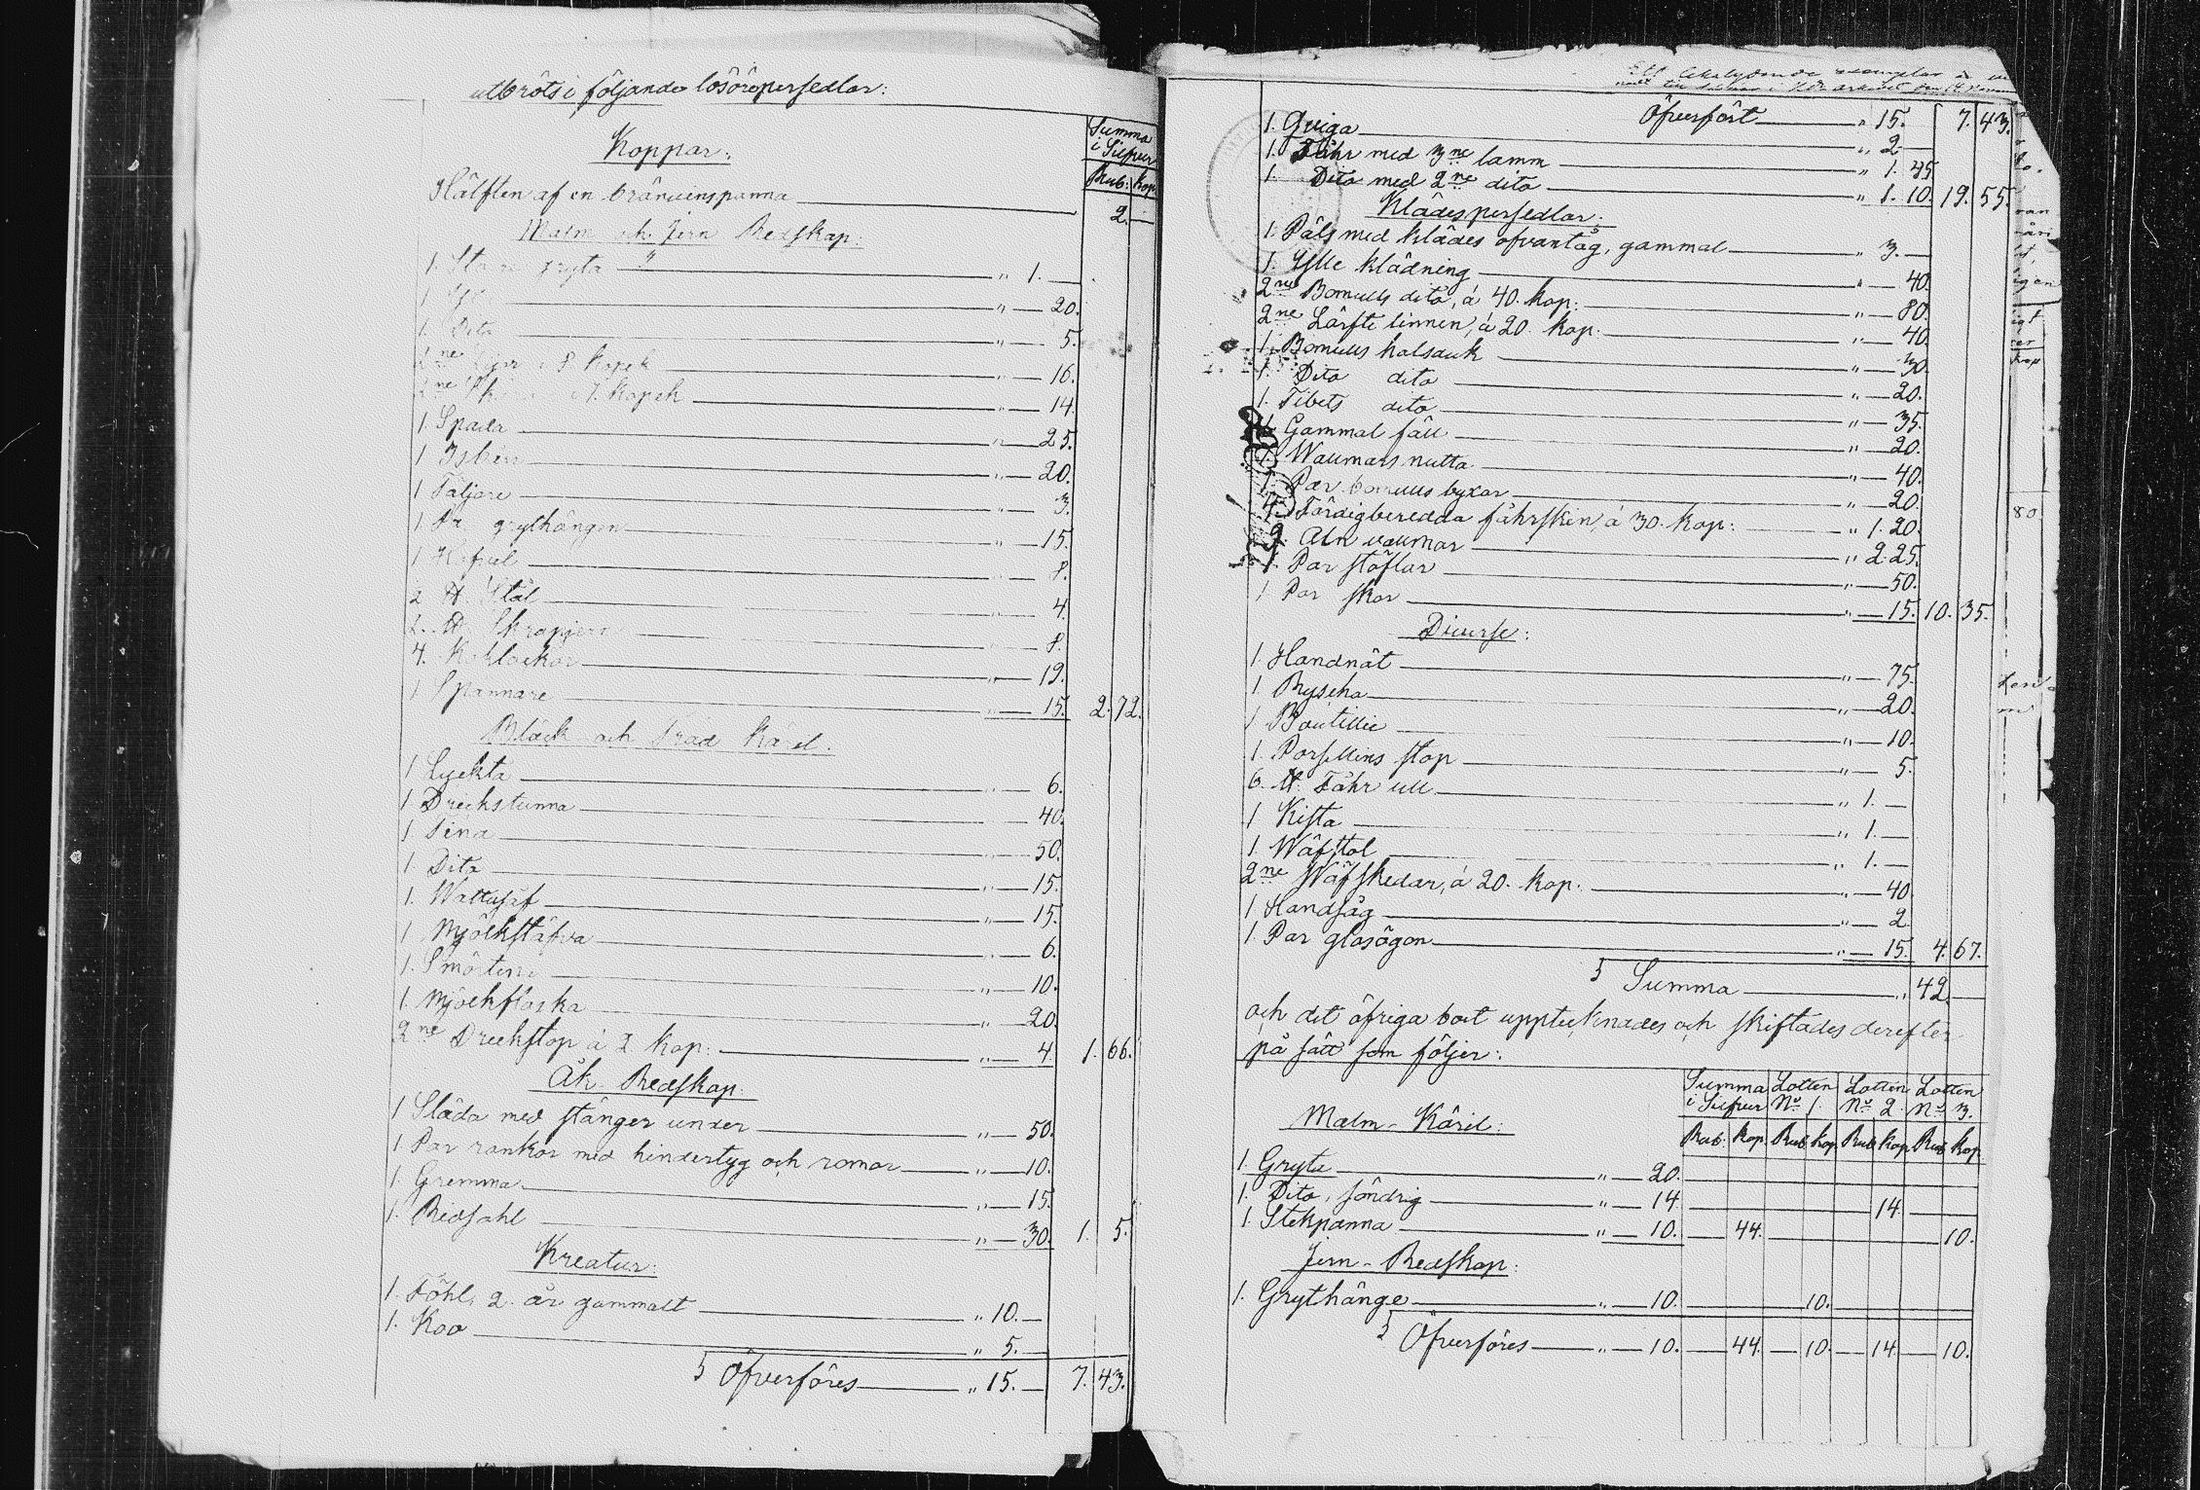 utbröts i följande lösörepersedlar:
Summa
i Silfver
Koppar:
Rub: Kop
Hälften af en brännvinspanna 2. —
Malm och Jern Redskap:
1. Stor gryta " 1. —
1 " — 20.
1. Dito " — 5.
2ne 8 Kopek " — 16.
2ne 7. Kopek " — 14.
1 Spada " — 25.
1 Isbill " — 20.
1 Täljare " — 3.
1 grythängen " — 15.
1 " — 8.
2 ℔ Stål " — 4.
2. ℔ Skrapjern " — 8.
4. Koklockor " — 19.
1 Spannare " — 15. 2. 72.
Bläck och Träd Käril.
1 Lyckta " — 6.
1 Drickstunna " — 40.
1 Tina " — 50.
1 Dito " — 15.
1. Wattusåf " — 15.
1 Mjölkstäfva " — 6.
1. Smörtina " — 10.
1. Mjölkflaska " — 20.
2ne Drickstop á 2 Kop: " — 4. 1. 66.
Åk-Redskap.
1 Släda med stänger under " — 50.
1 Par rankor med hindertyg och romor " — 10.
1. Gremma " — 15.
1. Ridsahl " — 30. 1. 5.
Kreatur:
1. Föhl, 2. år gammalt " 10. —
1. Koo " 5. —
Öfverföres " 15. — 7. 43.
Öfverfört " 15. 7. 43.
1. Qviga " 2 —
1. Fåhr med 3ne lamm " 1. 45
1. Dito med 2ne dito " 1. 10. 19. 55.
Klädespersedlar:
1. Päls med klädes ofvantåg, gammal " 3. —
1. Ylle klädning " — 40.
2ne Bomulls dito, á 40. Kop: " — 80.
2ne Lärfts linnen, á 20. Kop. " — 40.
1. Bomulls halsduk " — 30.
1. Dito dito " — 20.
1. Tibets dito " — 35.
1. Gammal fäll " — 20.
1. Wallmars nutta " — 40.
1. Par bomulls byxor " — 20.
4. Färdigberedda fåhrskin, á 30. Kop: " 1. 20.
9. Aln vallmar " 2. 25.
1. Par stöflar " — 50.
1 Par skor " — 15. 10. 35.
Diverse:
1. Handnät " — 75.
1 Rysscha " — 20.
1 Boutillie " — 10.
1. Porsellins stop " — 5.
6. ℔. Fåhr ull " 1. —
1 Kista " 1. —
1. Wäfstol " 1. —
2ne Wäfskedar, á 20. Kop. " — 40
1 Handsåg " — 2
1. Par glasögon " — 15. 4. 67.
Summa " 42 —
och det öfriga bort upptecknades och skiftades derefter
på sätt som följer:
Summa Lotten Lotten Lotten
i Silfver No 1. No 2. No 3.
Rub. Kop. Rub Kop Rub Kop Rub Kop
Malm-Käril:
1. Gryta " — 20.
1. Dito, söndrig " — 14. 14.
1. Stekpanna " — 10. 44. 10.
Jern-Redskap:
1. Grythänge " — 10. 10.
Öfverföres " — 10. — 44. — 10. — 14. — 10.